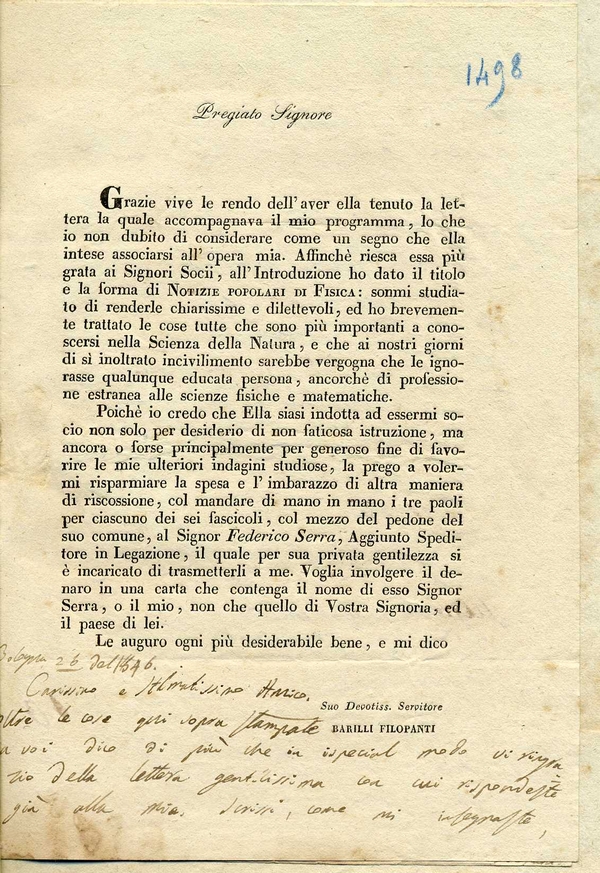 1498
Pregiato Signore
Grazie vive le rendo dell'aver ella tenuto la let-
tera la quale accompagnava il mio programma, lo che
io non dubito di considerare come un segno che ella
intese associarsi all'opera mia. Affinchè riesca essa più
grata ai Signori Socii, all'Introduzione ho dato il titolo
e la forma di NOTIZIE POPOLARI DI FISICA: sonmi studia-
to di renderle chiarissime e dilettevoli, ed ho brevemen-
te trattato le cose tutte che sono più importanti a cono-
scersi nella Scienza della Natura, e che ai nostri giorni
di sì inoltrato incivilimento sarebbe vergogna che le igno-
rasse qualunque educata persona, ancorchè di professio-
ne estranea alle scienze fisiche e matematiche.
Poichè io credo che Ella siasi indotta ad essermi so-
cio non solo per desiderio di non faticosa istruzione, ma
ancora o forse principalmente per generoso fine di favo-
rire le mie ulteriori indagini studiose, la prego a voler-
mi risparmiare la spesa e l'imbarazzo di altra maniera
di riscossione, col mandare di mano in mano i tre paoli
per ciascuno dei sei fascicoli, col mezzo del pedone del
suo comune, al Signor Federico Serra, Aggiunto Spedi-
tore in Legazione, il quale per sua privata gentilezza si
è incaricato di trasmetterli a me. Voglia involgere il de-
naro in una carta che contenga il nome di esso Signor
Serra, o il mio, non che quello di Vostra Signoria, ed
il paese di lei.
Le auguro ogni più desiderabile bene, e mi dico
Bologna 26 del 1846.
Carissimo e Amico,
Suo Devotiss. Servitore
oltre le cose qui sopra stampate
BARILLI FILOPANTI
a voi dico di più che in ispecial modo vi ringra=
zio della lettera gentilissima con cui rispondeste
già alla mia. Scrissi, come mi insegnaste,